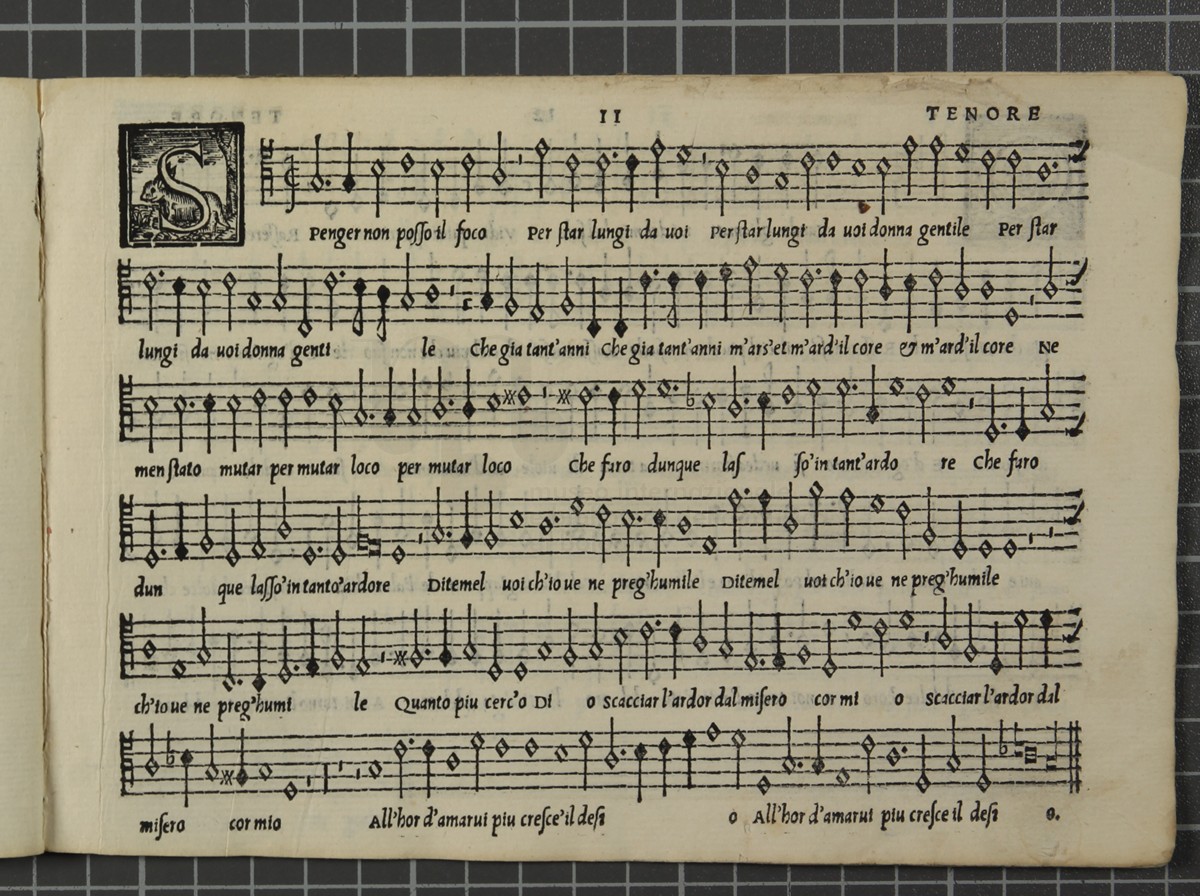 II TENORE
S Penger non posso il foco Per star lungi da uoi Per star lungi da uoi donna gentile Per star
lungi da uoi donna genti le Che gia tant'anni Che gia tant'anni m'ars'et m'ard'il core & m'ard'il core Ne
men stato mutar per mutar loco per mutar loco Che faro dunque las so'in tant'ardo re Che faro
dun que lasso'in tanto'ardore Ditemel uoi ch'io ue ne preg'humile Ditemel uoi ch'io ue ne preg'humile
ch'io ue ne preg'humi le Quanto piu cerc'o Di o scacciar l'ardor dal misero cor mi o scacciar l'ardor dal
misero cor mio All'hor d'amarui piu cresce'il desi o All'hor d'amarui piu cresce il desi o.